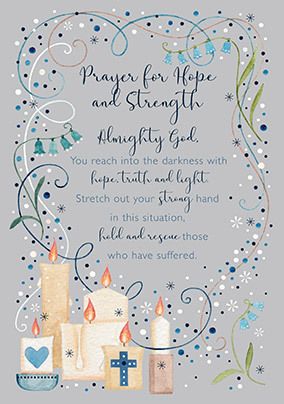 Prayer for Hope
and Strength
Almighty God,
You reach into the darkness with
hope, truth and light.
Stretch out your strong hand
in this situation,
hold and rescue those
who have suffered.